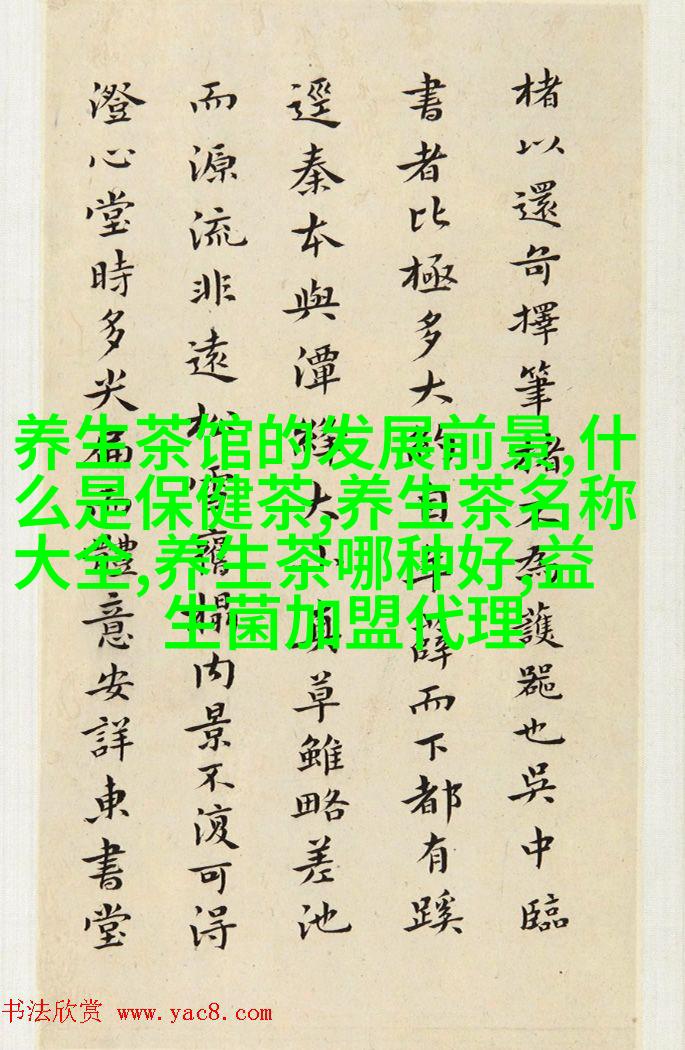 楮以還奇擇筆楮不為護器也吳中臨
書者比極多大約自黃薛而下都有蹊
逕秦本與潭釋大小真草雖略差池
而源流非遠松雪舊榻內景不復可得
澄心堂時多尖扁而體意安詳東書堂
养生茶馆的发展前景,什
么是保健茶,养生茶名称
大全,养生茶哪种好,益
生菌加盟代理
书法欣赏 www.yac8.com